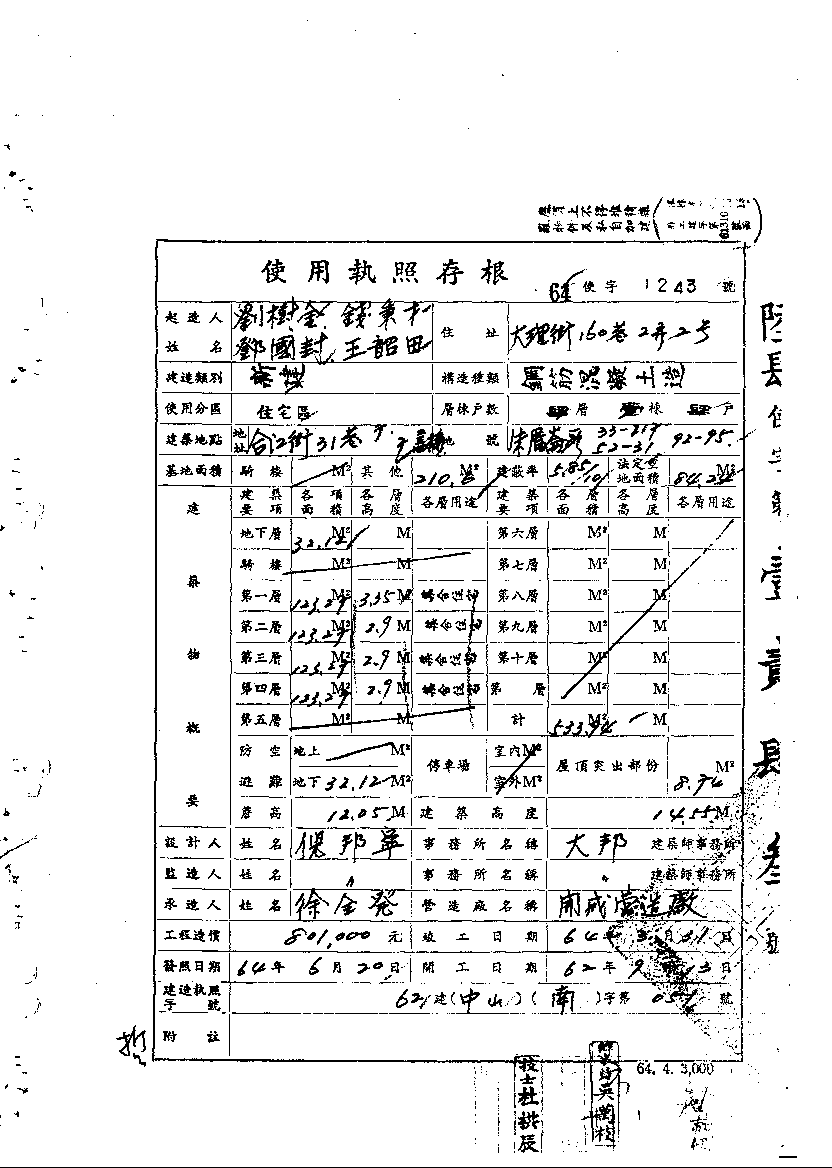 使用執照存根
64 使字 1243 號
起造人姓名 劉樹金 錢秉才 鄧國封 王韶田 住址 大理街160巷2弄2号
建造類別 新建 構造種類 鋼筋混凝土造
使用分區 住宅區 層棟戶數 層 棟 戶
建築地點 地址 合江街31巷 地號 33-217 52-31 92-95
基地面積 騎樓 M² 其他 210.6 M² 建蔽率 5.85/10 法定空地面積 84.24 M²
建築物概要
建築要項 各項面積 各層高度 各層用途 建築要項 各層面積 各層高度 各層用途
地下層 32.12 M² M 第六層 M² M
騎樓 M² M 第七層 M² M
第一層 123.27 M² 3.35 M 集合住宅 第八層 M² M
第二層 123.27 M² 2.9 M 集合住宅 第九層 M² M
第三層 123.27 M² 2.9 M 集合住宅 第十層 M² M
第四層 123.27 M² 2.9 M 集合住宅 第 層 M² M
第五層 M² M 計 533.94 M² M
防空避難 地上 M² 停車場 室內 M² 屋頂突出部份 8.74 M²
地下 32.12 M² 室外 M²
簷高 12.05 M 建築高度 14.55 M
設計人 姓名 事務所名稱 大邦 建築師事務所
監造人 姓名 〃 事務所名稱 〃 建築師事務所
承造人 姓名 徐金發 營造廠名稱 開成營造廠
工程造價 801,000 元 竣工日期 64年 3月 31日
發照日期 64年 6月 20日 開工日期 62年 9月 13日
建造執照字號 62建(中山)(南)字第 號
附註
64. 4. 3,000
技士杜拱辰